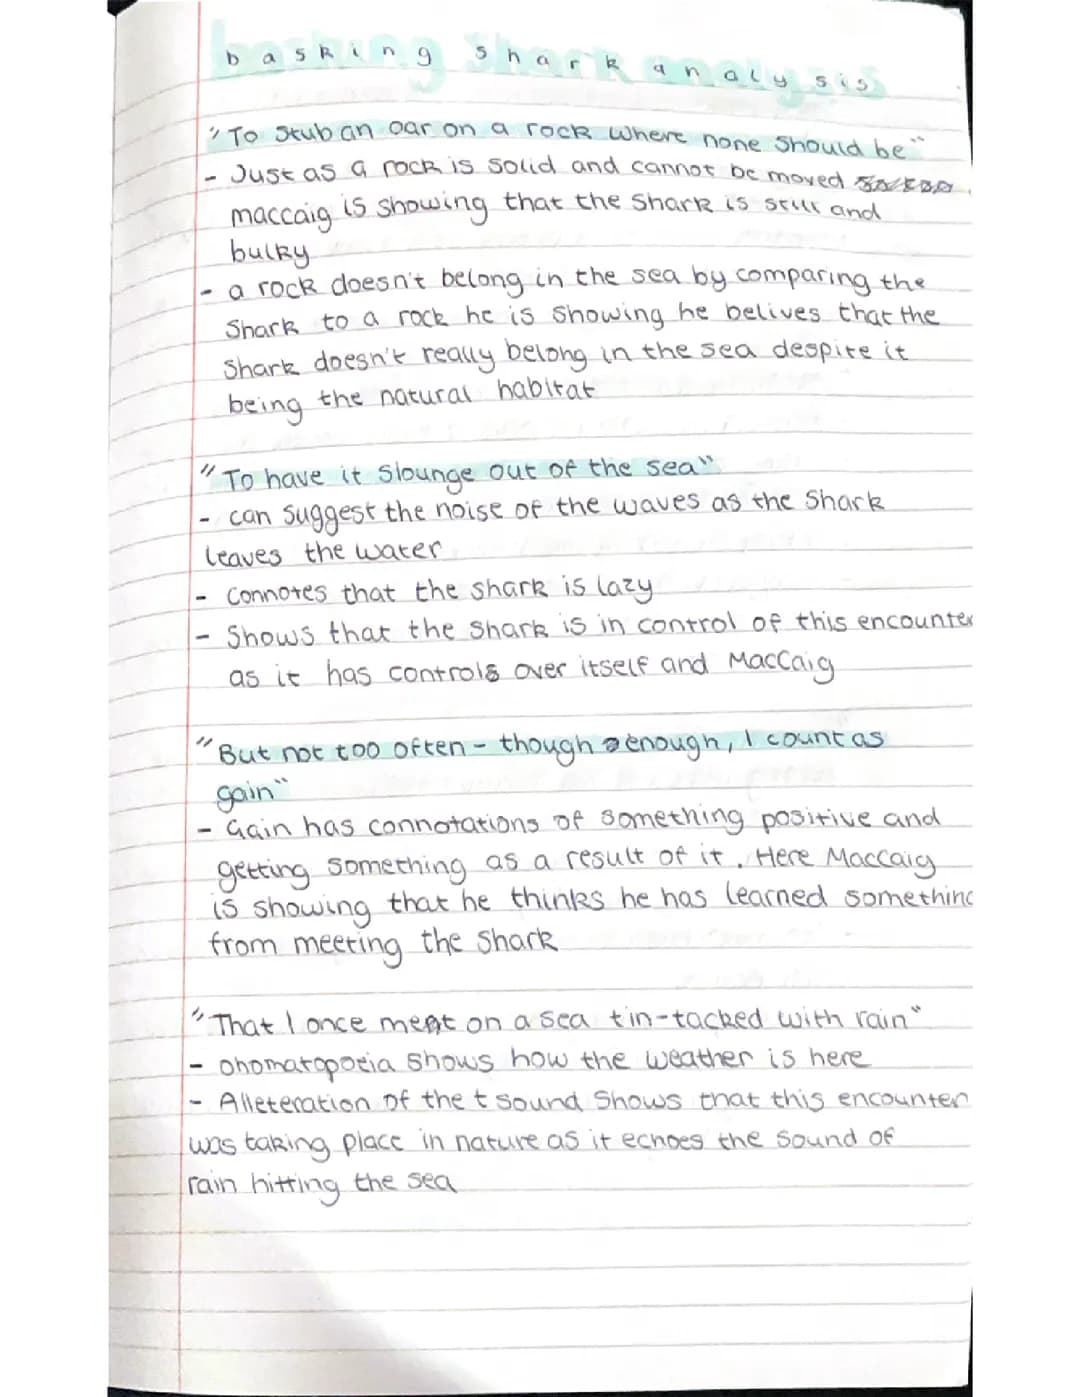 basking shark analysis
"To stub an oar on a rock where none should be"
- Just as a rock is solid and cannot be moved
maccaig is showing that the shark is still and
bulky
- a rock doesn't belong in the sea by comparing the
Shark to a rock he is showing he belives that the
Shark doesn't really belong in the sea despite it
being the natural habitat
"To have it slounge out of the sea"
- can suggest the noise of the waves as the shark
leaves the water
- connotes that the shark is lazy
- Shows that the shark is in control of this encounter
as it has controls over itself and MacCaig
"But not too often - though enough, I count as
gain"
- Gain has connotations of something positive and
getting something as a result of it. Here MacCaig
is showing that he thinks he has learned something
from meeting the shark
"That I once met on a sea tin-tacked with rain"
- onomatopoeia shows how the weather is here
- Alleteration of the t sound shows that this encounter
was taking place in nature as it echoes the sound of
rain hitting the sea